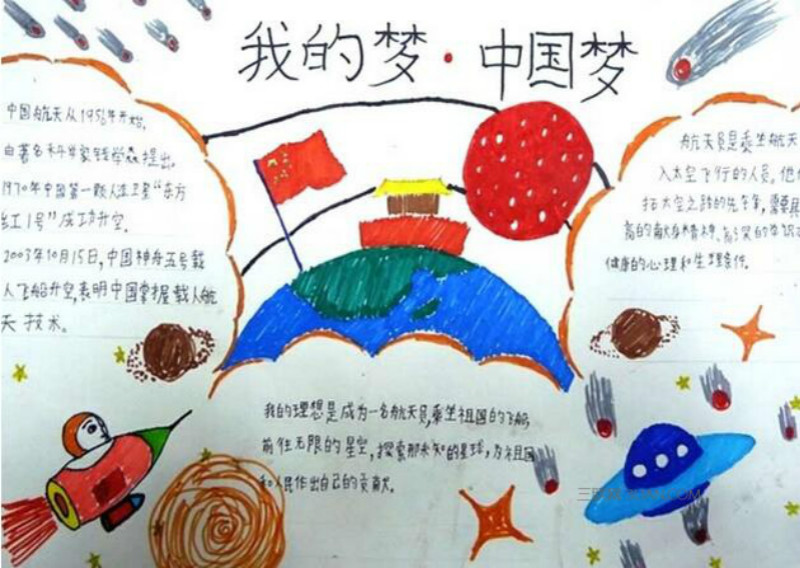 我的梦·中国梦
中国航天从1956年开始,
由著名科学家钱学森提出。
1970年中国第一颗人造卫星“东方
红1号”成功升空。
2003年10月15日,中国神舟五号载
人飞船升空,表明中国掌握载人航
天技术。
航天员是乘坐航天
入太空飞行的人员,他
拓太空之路的先锋,需要具
高的献身精神、高深的学识
健康的心理和生理条件。
我的理想是成为一名航天员,乘坐祖国的飞船,
前往无限的星空,探索那未知的星球,为祖国
和人民作出自己的贡献。